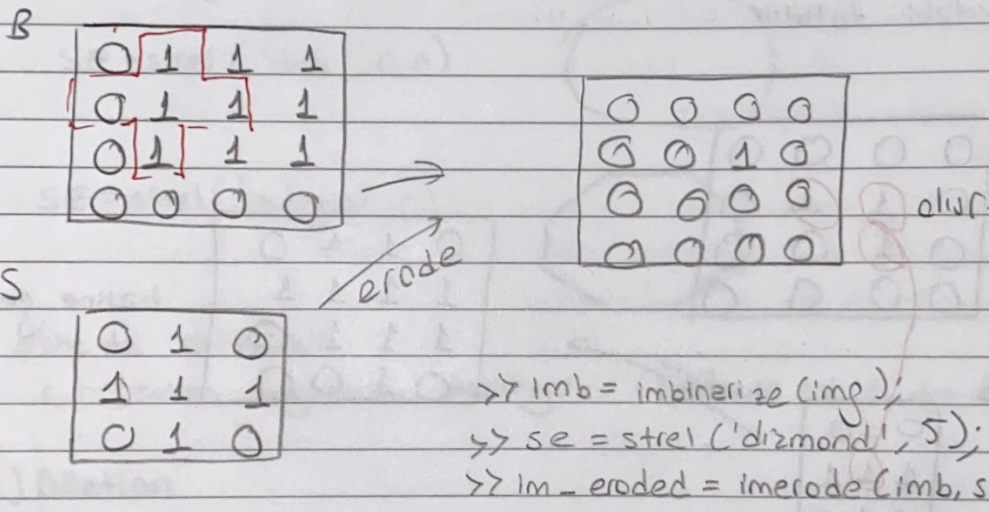 B
0 1 1 1
0 1 1 1
0 1 1 1
0 0 0 0
erode
0 0 0 0
0 0 1 0
0 0 0 0
0 0 0 0
S
0 1 0
1 1 1
0 1 0
>> imb = imbinerize (img);
>> se = strel ('dizmond', 5);
>> im_eroded = imerode (imb, s